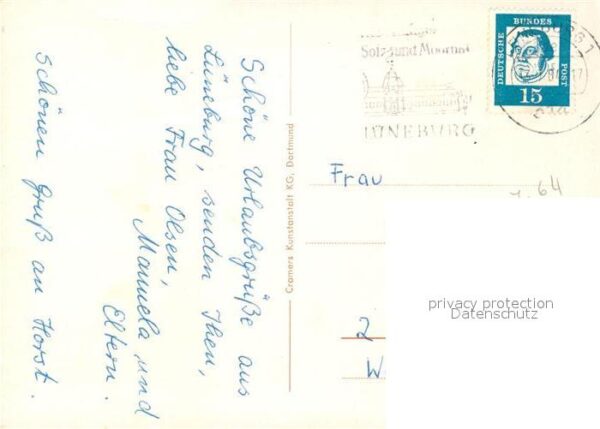 Schöne Urlaubsgrüße aus
Lüneburg, senden Ihnen,
liebe Frau Olsen,
Manuela und
Eltern.
Schönen Gruß an Horst.
Cramers Kunstanstalt KG, Dortmund
Sole- und Moorbad
LÜNEBURG
DEUTSCHE
BUNDES
POST
15
Frau
64
2
W
privacy protection
Datenschutz